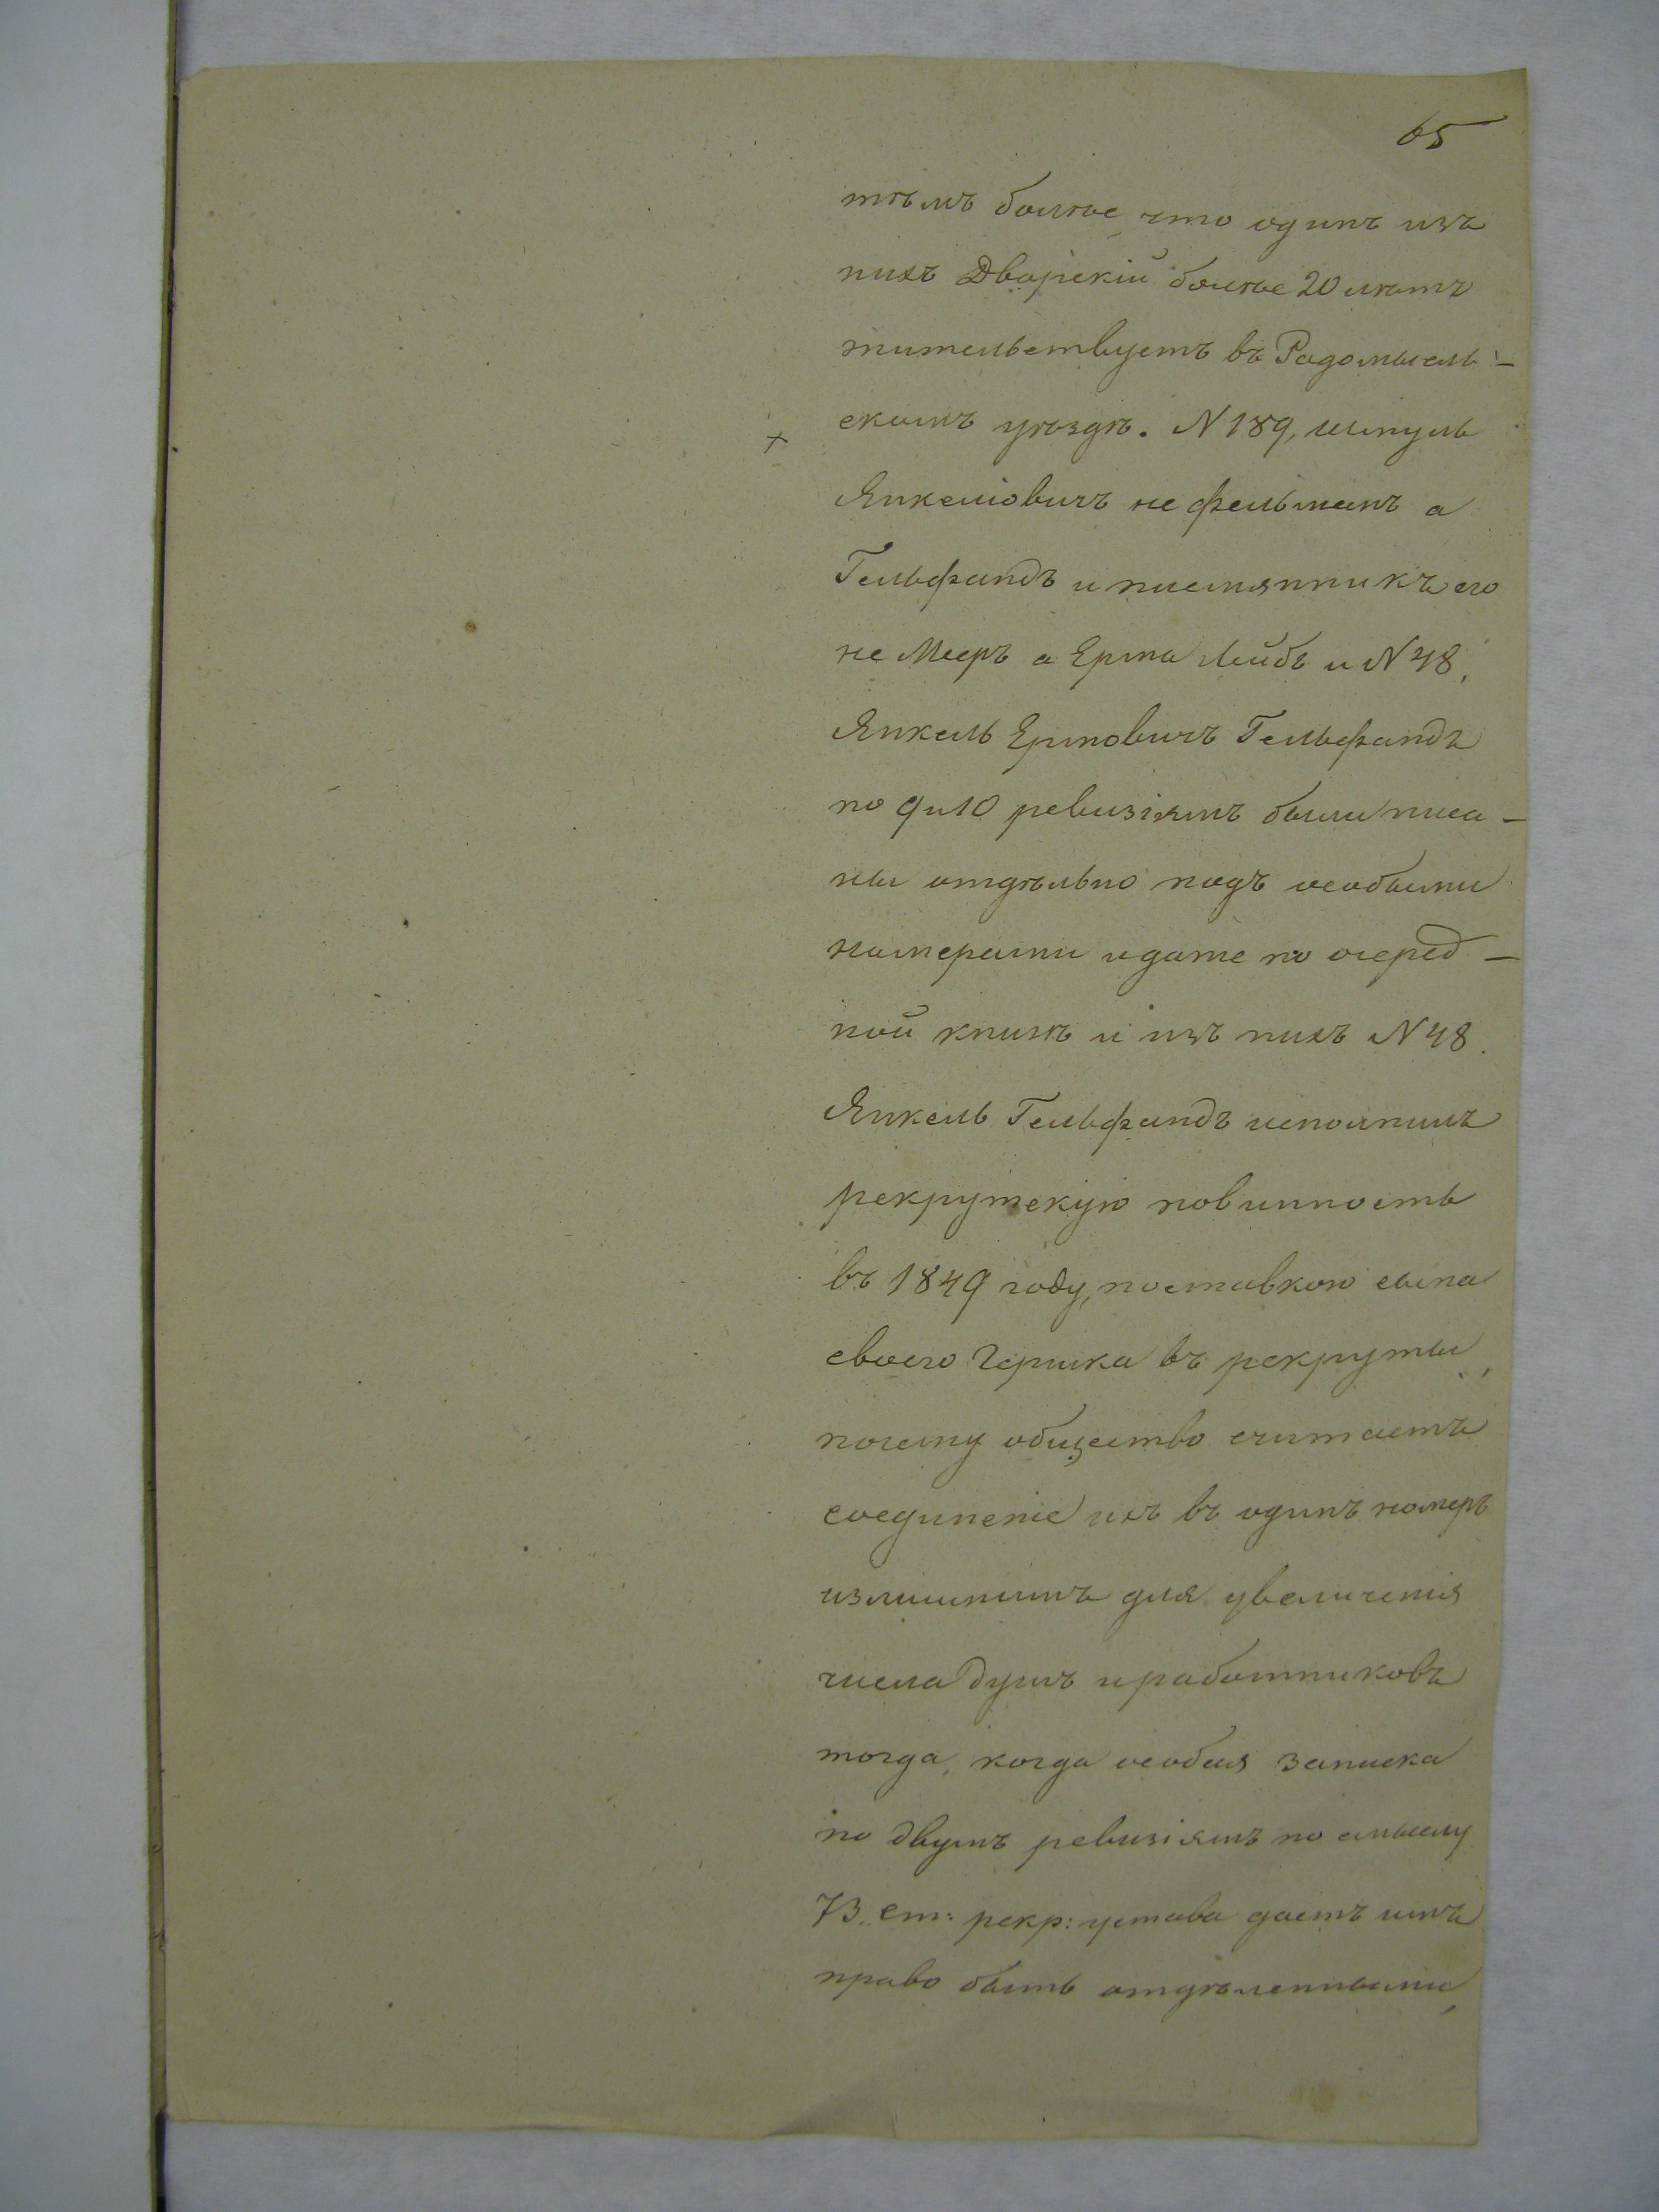 65
тѣмъ болѣе, что одинъ изъ
нихъ Дворскій болѣе 20 лѣтъ
жительствуетъ въ Радомысль-
скомъ уѣздѣ. N 189, Шмуль
Янкеліовичъ не Фельманъ а
Гельфандъ и племянникъ его
не Мееръ а Ерма Лейбъ и N 48,
Янкель Ермовичъ Гельфандъ
по 9 и 10 ревизіямъ были писа-
ны отдѣльно подъ особыми
номерами и даже по очеред-
ной книгѣ и изъ нихъ N 48.
Янкель Гельфандъ исполнилъ
рекрутскую повинность
въ 1849 году, поставкою сына
своего Гершка въ рекруты,
почему общество считаетъ
соединеніе ихъ въ одинъ номеръ
излишнимъ для увеличенія
числа душъ и работниковъ
тогда, когда особая записка
по двумъ ревизіямъ по смыслу
73. ст: рекр: устава даетъ имъ
право быть отдѣленными,